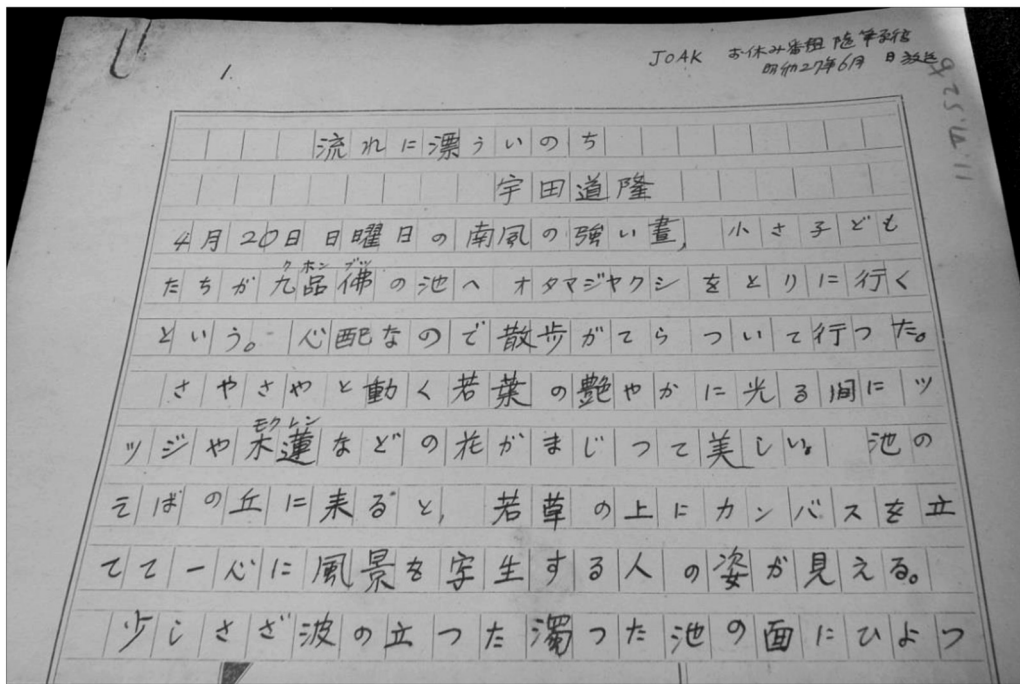 1.
JOAK お休み番組 随筆
昭和27年6月 日放送
流れに漂ういのち
宇田道隆
4月20日日曜日の南風の強い晝,小さ子ども
たちが九品佛の池へオタマジヤクシをとりに行く
クホンブツ
という。心配なので散歩がてらついて行つた。
さやさやと動く若葉の艶やかに光る間にツ
ツジや木蓮などの花がまじつて美しい。池の
モクレン
そばの丘に来ると,若草の上にカンバスを立
てて一心に風景を写生する人の姿が見える。
少しさざ波の立つた濁つた池の面にひよつ